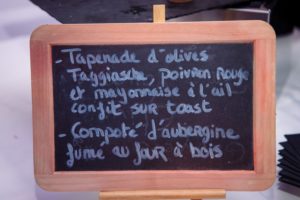 - Tapenade d'olives
Taggiasche, poivron Rouge
et mayonnaise à l'ail
confit sur toast
- Compoté d'aubergine
fumé au four à bois